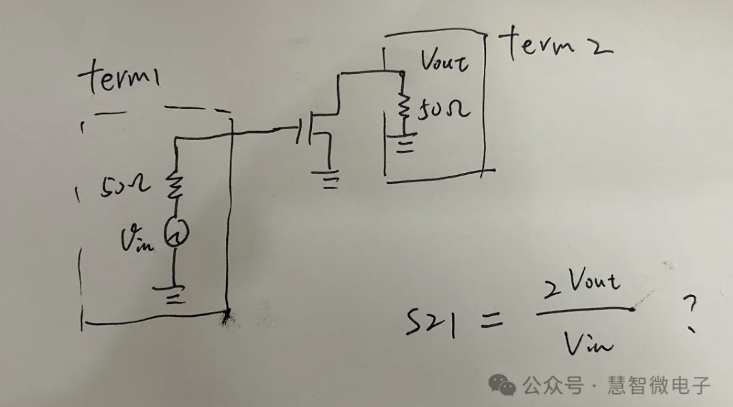 term1
50Ω
Vin
Vout
50Ω
term2
S21 = 2Vout / Vin ?
公众号·慧智微电子